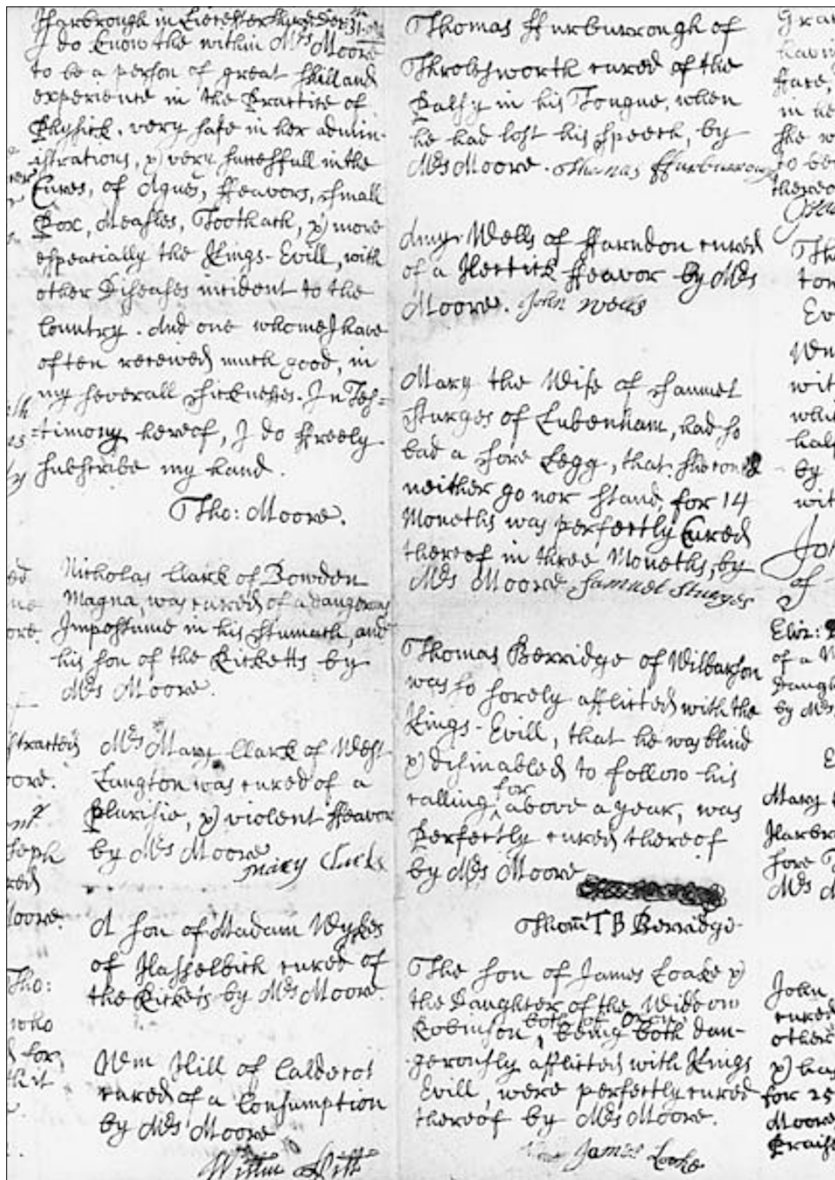 Harbrough in Leicestershire Decr 31.
I do know the within Mrs Moore
to be a person of great skill and
experience in the Practice of
Physick, very safe in her admin-
istrations, & very successfull in the
Cures, of Agues, ffeavors, small
Pox, Measles, Toothach, & more
especially the Kings-Evill, with
other Diseases incident to the
Country. And one whome I have
often received much good, in
my severall sicknesses. In Tes-
=timony hereof, I do ffreely
subscribe my hand.
Tho: Moore.
Nicholas Clark of Bowden
Magna was cured of a dangerous
Impostume in his stumach, and
his son of the Ricketts by
Mrs Moore.
Mrs Mary Clark of West
Langton was cured of a
Plurisie, & violent ffeavor
by Mrs Moore
Mary Clarke
A son of Madam Wykes
of Hasselbich cured of
the Rickets by Mrs Moore.
Wm Hill of Caldecot
cured of a Consumption
by Mrs Moore
Thomas ffurburrough of
Throlesworth cured of the
Palsy in his Tongue, when
he had lost his speech, by
Mrs Moore. Thomas ffurburrough
Amy Wells of ffarndon cured
of a Hectick ffeavor by Mrs
Moore. John Wells
Mary the Wife of Samuel
Sturges of Lubenham, had so
bad a sore Legg, that she could
neither go nor stand, for 14
Moneths was perfectly Cured
thereof in three Moneths, by
Mrs Moore Samuel Sturges
Thomas Berridge of Wilbarson
was so sorely afflicted with the
Kings-Evill, that he was blind
& disinabled to follow his
calling for above a year, was
Perfectly cured thereof
by Mrs Moore
Thom TB Berridge
The son of James Loake &
the Daughter of the Widdow
Robinson, both of Oxen, being both dan-
gerously afflicted with Kings
Evill, were perfectly cured
thereof by Mrs Moore.
James Looke